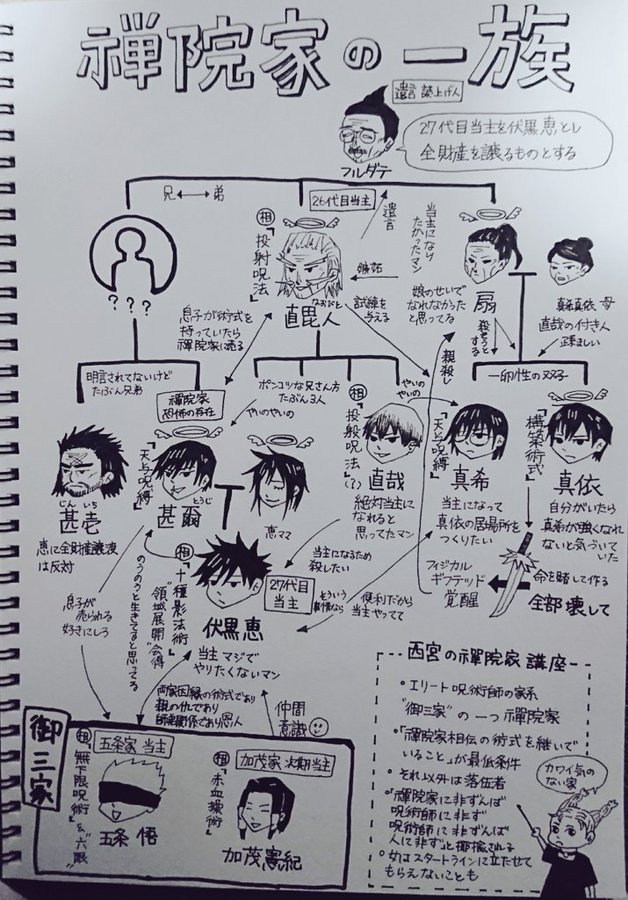 禪院家の一族
遺言 読上げ人
27代目当主を伏黒恵とし
全財産を譲るものとする
フルダテ
兄↔弟
26代目当主
相
『投射呪法』
直毘人
なおびと
遺言
嫉妬
試練を
与える
当主になり
たかったマン
娘のせいで
なれなかった
と思ってる
扇
殺そうと
真希真依 母
直哉の付き人
疎ましい
一卵性の双子
???
息子が術式を
持っていたら
禪院家に売る
明言されてないけど
たぶん兄弟
禪院家
恐怖の存在
ポンコツな兄さん方
たぶん3人
やいのやいの
やいの
やいの
親殺し
じんいち
甚壱
恵に全財産譲渡
は反対
『天与呪縛』
とうじ
甚爾
恵ママ
相
『投射呪法』(?)
直哉
絶対当主に
なれると
思ってたマン
『天与呪縛』
真希
当主になって
真依の居場所を
つくりたい
『構築術式』
真依
自分がいたら
真希が強くなれ
ないと気づいていた
フィジカル
ギフテッド
覚醒
命を賭して作る
全部壊して
息子が
売られる
好きにしろ
のうのうと生きてると思ってる
相
『十種影法術』
"領域展開"会得
伏黒恵
27代目
当主
当主になるため
殺したい
そういう
事情なら
便利だから
当主やってて
当主マジで
やりたくないマン
両家因縁の術式であり
親の仇であり
師弟関係であり恩人
仲間
意識
御三家
相
五条家 当主
『無下限呪術』&"六眼"
五条 悟
相
加茂家 次期当主
『赤血操術』
加茂憲紀
西宮の禪院家講座
・エリート呪術師の家系
"御三家"の一つ禪院家
・「禪院家相伝の術式を継いで
いること」が最低条件
・それ以外は落伍者
・"禪院家に非ずんば
呪術師に非ず
呪術師に非ずんば
人に非ず"と揶揄される
・女はスタートラインに立たせて
もらえないことも
カワイ気の
ない家